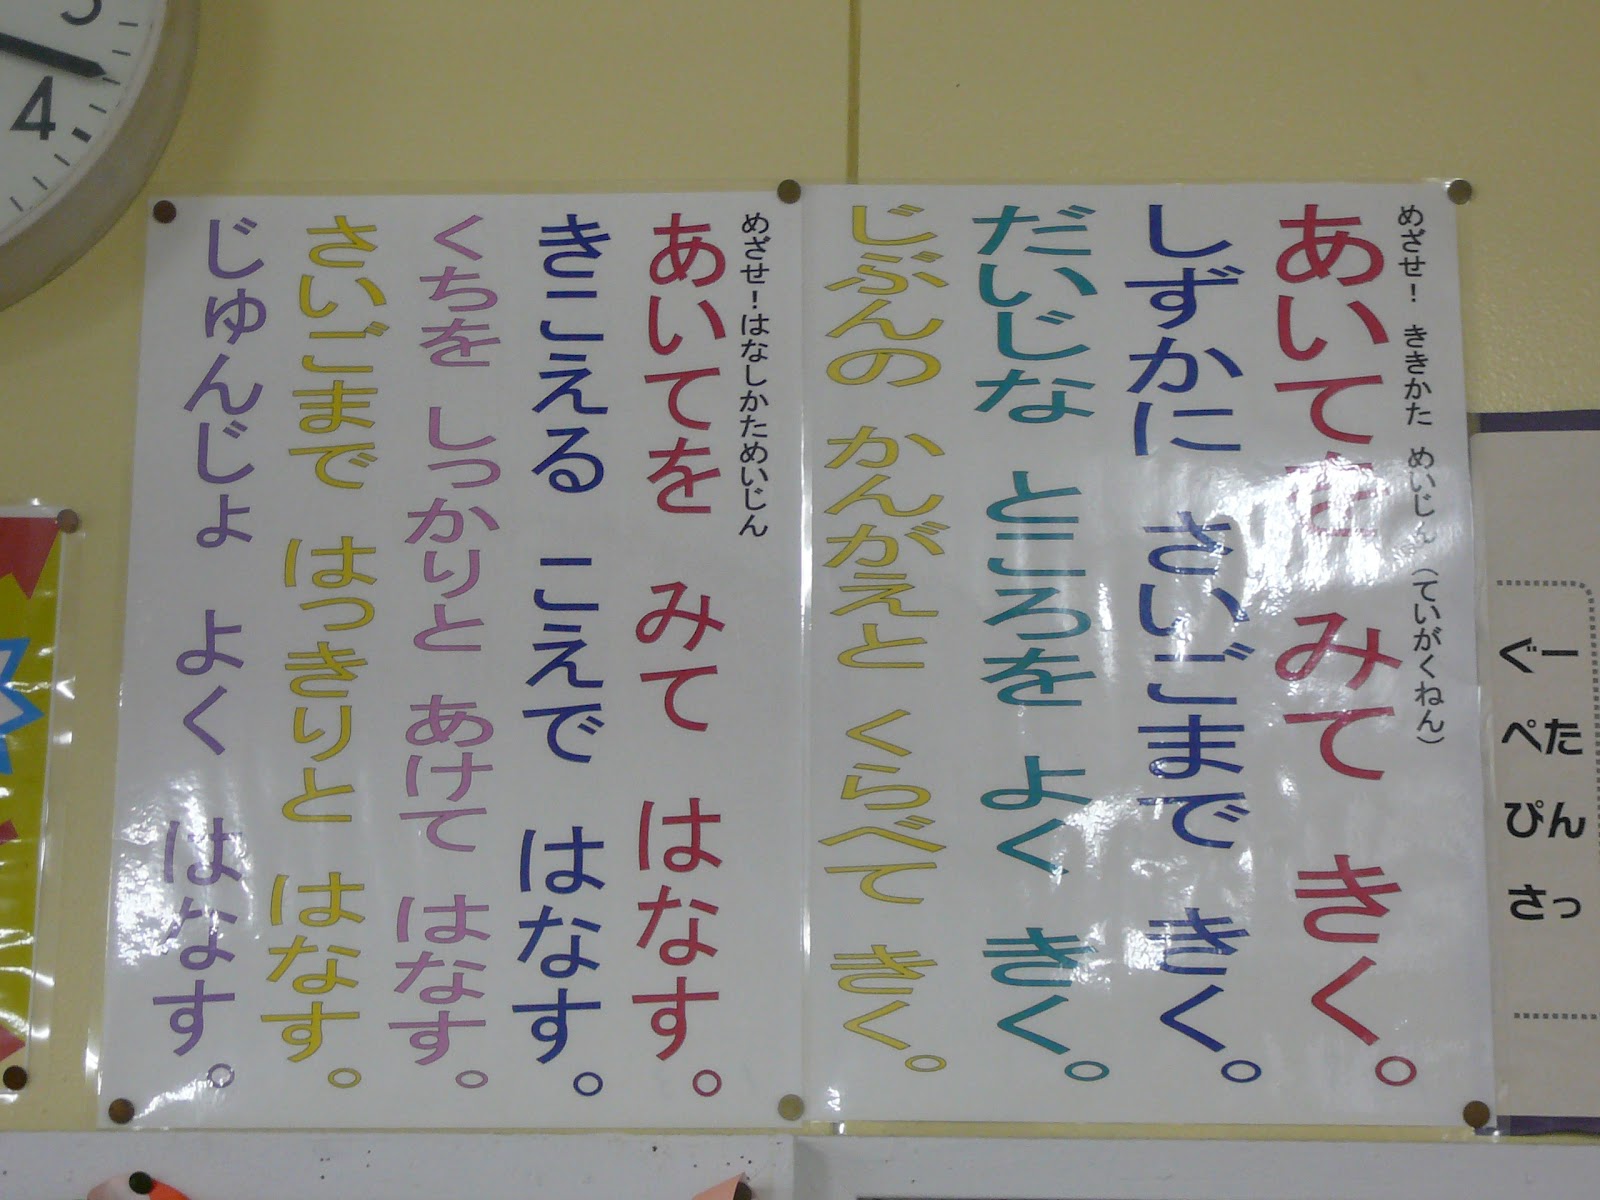 ぐー
ぺた
ぴん
さっ
めざせ! ききかた めいじん(ていがくねん)
あいてを みて きく。
しずかに さいごまで きく。
だいじな ところを よく きく。
じぶんの かんがえと くらべて きく。
めざせ!はなしかためいじん
あいてを みて はなす。
きこえる こえで はなす。
くちを しっかりと あけて はなす。
さいごまで はっきりと はなす。
じゅんじょ よく はなす。
3
4